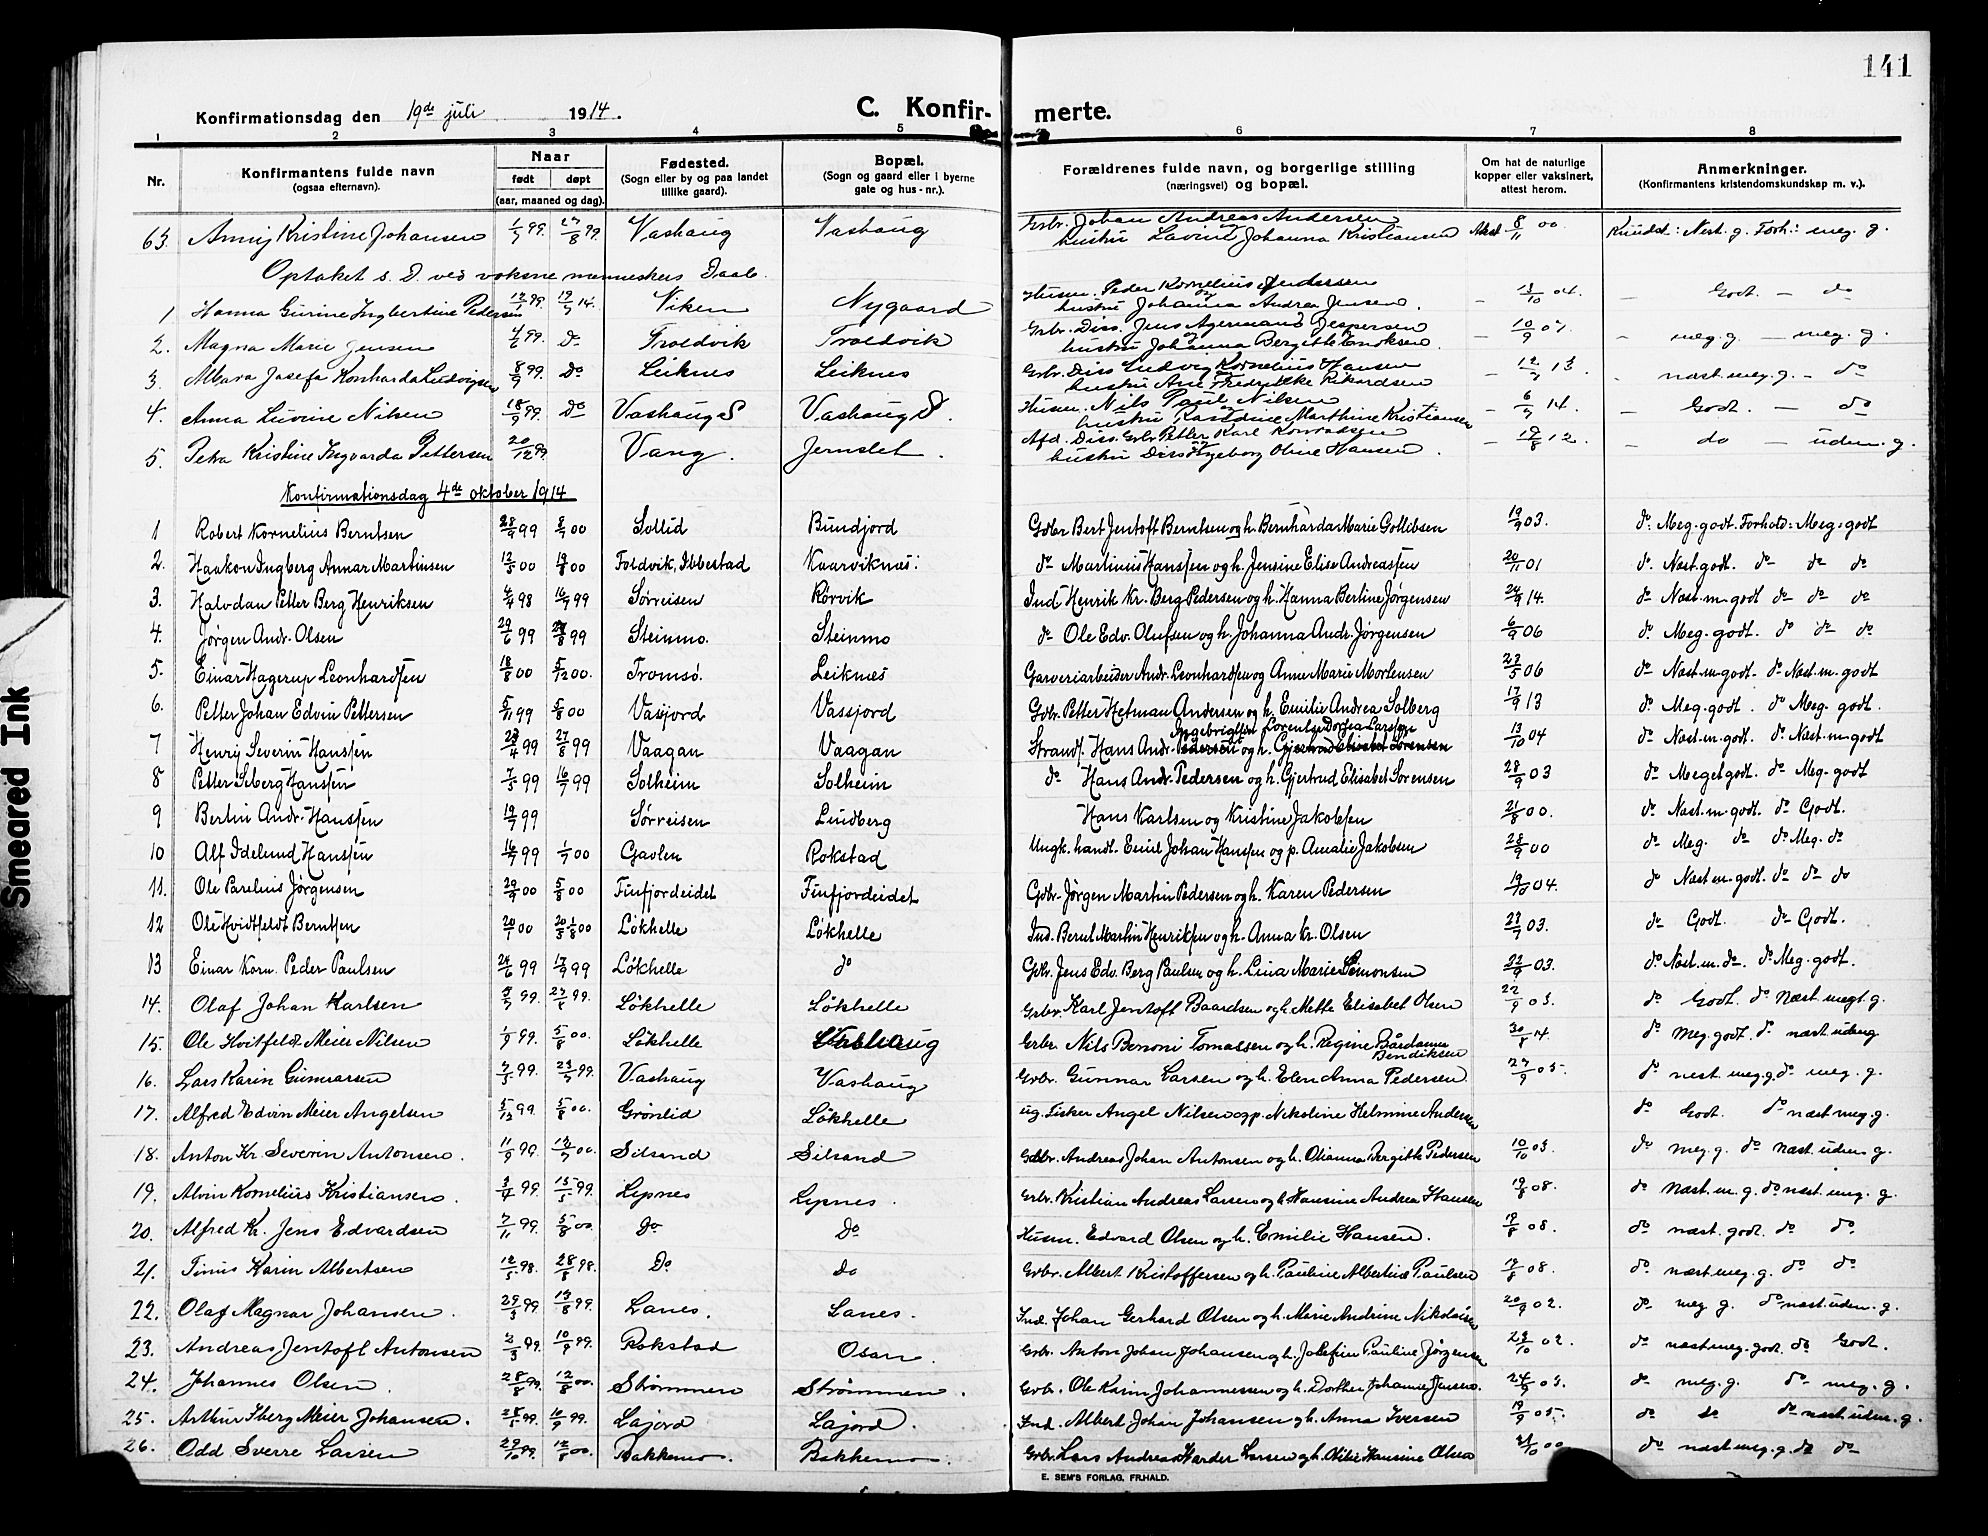 141
Konfirmationsdag den 19de juli 1914.
C. Konfir- merte.
1 2 3 4 5 6 7 8
Nr.
Konfirmantens fulde navn
(ogsaa efternavn).
Naar
født døpt
(aar, maaned og dag).
Fødested.
(Sogn eller by og paa landet
tillike gaard).
Bopæl.
(Sogn og gaard eller i byerne
gate og hus - nr.).
Forældrenes fulde navn, og borgerlige stilling
(næringsvei) og bopæl.
Om hat de naturlige
kopper eller vaksinert,
attest herom.
Anmerkninger.
(Konfirmantens kristendomskundskap m. v.).
63. Anny Kristine Johansen 1/7 99. Vashaug Vashaug Grbr. Johan Andreas Andersen
og hustru Lavine Johanna Kristiansen Attest 8/11 00 Kundsk: Næst. g. Forh.: meg. g.
Optaket s. D. ved voksne menneskers Daab.
1 Hanna Gurine Ingbertine Pedersen 12/1 99. 19/7 14. Viken Nygaard Husm. Peder Kornelius Andersen
og hustru Johanna Andrea Jensen. - 13/10 04. - Godt. - do
2. Magna Marie Jensen 4/6 99. Do Troldvik Troldvik Grbr. Diss. Jens Agermand Jespersen
og hustru Johanna Bergitte Enoksen. - meg. g. - meg. g.
3. Alvara Josefa Konharda Ludvigsen 8/9 99. Do Leiknes Leiknes Grbr. Diss Ludvig Kornelius Hansen
hustru Ane Fredrikke Rikardsen - 12/7 13. - næst. meg. g. - do
4. Anna Luvine Nilsen 18/9 99. Do Vashaug S Vashaug S. Husm. Nils Paul Nilsen
og hustru Kasidine Marthine Kristiansen - 6/7 14. - Godt. - do
5. Petra Kristine Ingvarda Pettersen 20/12 99. Vang. Jernslet. Afd. Diss. Grbr. Petter Karl Konradsen
og hustru Diss Ingeborg Oline Hansen. - 19/8 12. - do - udm. g.
Konfirmationsdag 4de oktober 1914
1 Robert Kornelius Berntsen 28/9 99 8/7 00 Sollid Bundjord Gdbr Bert Jentoft Berntsen og h. Bernharda Marie Gotlibsen 19/9 03. do: Meg. godt. Forhold: Meg. godt
2. Haakon Ingberg Annar Martinsen 12/5 00 19/8 00 Foldvik, Ibbestad Kaarviknes: do Martinus Hanssen og h. Jensine Elise Andreassen 20/11 01 do. Næst. godt. do do do
3. Halvdan Petter Berg Henriksen 4/4 98 16/7 99 Sørreisen Rørvik Ind Henrik Kr. Berg Pedersen og h. Hanna Bertine Jørgensen 24/9 14. do Næst. m. godt do do do
4. Jørgen Andr. Olsen 29/6 99 Steinmo. Steinmo do Ole Edv. Olufsen og h. Johanna Andr. Jørgensen 6/9 06 do Meg. godt. do do do
5. Einar Hagerup Leonhardsen 18/8 00 5/12 00. Tromsø. Leiknes Garveriarbeider Andr. Leonhardsen og Anne Marie Mortensen 23/5 06 do Næst. m. godt. do Næst. m. godt
6. Petter Johan Edvin Pettersen 5/11 99 5/8 00 Vasjord Vassjord Gdbr. Petter Hetman Andersen og h. Emilie Andrea Solberg 17/9 13 do Meg. godt. do Meg. godt.
Ingebrigtsen Lorentse Dorthea Larssen
7 Henry Severin Hanssen 23/4 99 27/8 99 Vaagan Vaagan Strands. Hans Andr. Pedersen og h. Gjertrud Elisabet Sørensen 13/10 04 do Næst. m. godt. do Næst. m. godt
8 Petter Seberg Hanssen 7/5 99 16/7 99 Solheim Solheim do Hans Andr. Pedersen og h. Gjertrud Elisabet Sørensen 28/9 03 do Meget godt. do Meg. godt
9 Bertin Andr. Hanssen 19/7 99 Sørreisen Lundberg Hans Karlsen og Kristine Jakobsen 21/8 00. do Næst. m. godt. do Godt.
10 Alf Idelund Hanssen 16/7 99 1/7 00 Gavlen Rokstad Ungk. handl. Emil Johan Hanssen og p. Amalie Jakobsen 28/9 00 do Meg. do do Meg. do
11. Ole Parelius Jørgensen 5/8 00 Finfjordeidet Finfjordeidet Gdbr. Jørgen Martin Pedersen og h. Karen Pedersen 19/10 04. do Næst m. godt. do do do
12 Ole Hvidtfeldt Berntsen 20/1 00 Løkhelle Løkhelle Ind. Bernt Martin Henriksen og h. Anna Kr. Olsen 23/7 03. do Godt. do Godt.
13 Einar Korn. Peder Paulsen 24/6 99 17/9 99 Løkhelle do Gdbr. Jens Edv. Berg Paulsen og h. Lina Marie Simonsen 22/9 03. do Næst. m. do. do Meg. godt.
14. Olaf Johan Karlsen 99. 99. Løkhelle Løkhelle Grbr. Karl Jentoft Baardsen og h. Mette Elisabet Olsen 22/9 03. do Godt. do Næst. megt. g.
15. Ole Hvitfeldt Meier Nilsen 1/9 99. 5/8 00. Løkhelle Vashaug Grbr. Nils Benoni Tomassen og h. Regine Bårdanna
Bendiksen 30/8 14. do Meg. godt. do næst. udm g
16. Lars Karin Gunnarsen 7/5 99. 23/7 99. Vashaug Vashaug Grbr. Gunnar Larsen og h. Elen Anna Pedersen 27/9 05. do næst. meg. g. do meg. g.
17. Alfred Edvin Meier Angelsen 5/12 99 5/8 00. Grønlid Løkhelle ug. Fisker Angel Nilsen og p. Nikoline Helmine Andersen do Godt. do næst. meg. g.
18. Anton Kr. Severin Antonsen. 11/9 99. Silsand Silsand Grbr. Andreas Johan Antonsen og h. Olianna Bergitte Pedersen 10/10 03. do meg. g. do næst. udm. g.
19. Alvin Kornelius Kristiansen. 99. 99. Lysnes Lysnes. Grbr. Kristian Andreas Larsen og h. Hansine Andrea Hansen 19/8 08. do næst. m. g. do næst. meg. g.
20. Alfred Kr. Jens Edvardsen 7/11 99. 5/8 00. Do Do Husm. Edvard Olsen og h. Emilie Hansen. 19/8 08. do næst. godt. do do
21. Tinus Karin Albertsen 12/5 98. 28/8 98. Do do Grbr. Albert Kristoffersen og h. Pauline Albertine Paulsen 08. do næst. meg. g. do do
22. Olaf Magnar Johansen. 29/3 99 13/8 99. Lanes. Lanes. Ind. Johan Gerhard Olsen og h. Marie Andrine Nikolaisen 20/9 02. do meg. g. do næst. udm. g.
23. Andreas Jentoft Antonsen 2/3 99. 10/9 99. Rokstad Osan. Grbr. Anton Johan Johansen og h. Josefine Pauline Jørgensen 02. do næst meg. godt. do Godt.
24. Johannes Olsen. 99. 12/8 00. Strømmen Strømmen. Grbr. Ole Karin Johannessen og h. Dorthea Johanne Jensen. 24/9 03. do meg. g. do meg. g.
25. Arthur Iberg Meier Johansen. 99. 10/9 99. Lajord Lajord. Ind. Albert Johan Johansen og h. Anna Iversen 19/9 05. do do do næst udm. g.
26. Odd Sverre Larsen 29/10 99. 12/8 00. Bakkemo. Bakkemo. Grbr. Lars Andreas Harder Larsen og h. Otilie Hansine Olsen 00 do næst meg. g. do do
E. SEM'S FORLAG, FR.HALD.
Smeared Ink